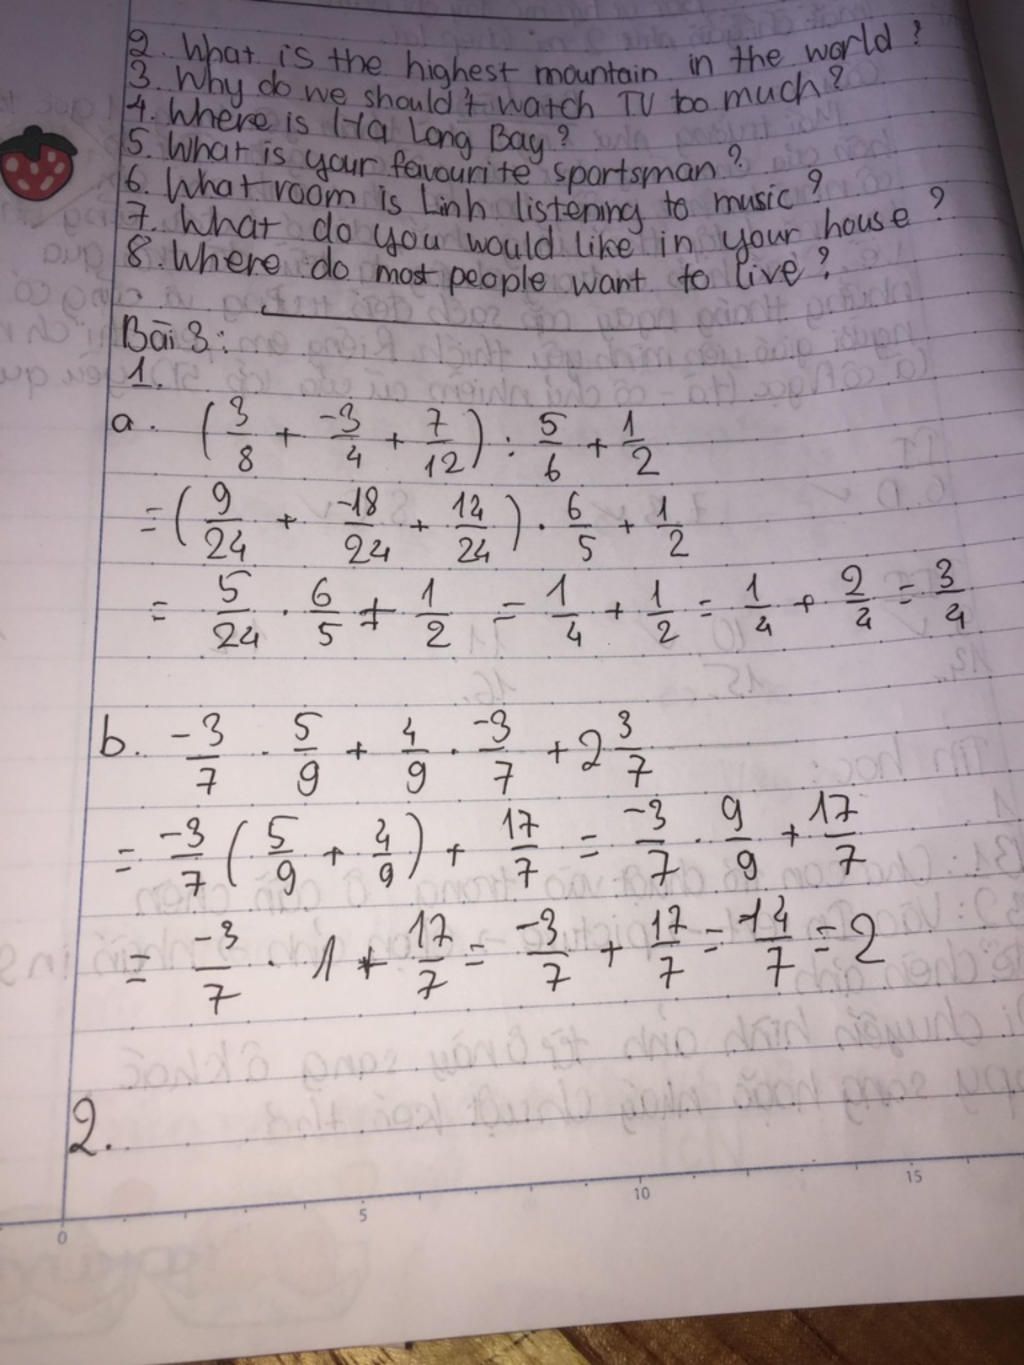 2. What is the highest mountain in the world?
3. Why do we should't watch TV too much?
4. Where is Ha Long Bay?
5. What is your favourite sportsman?
6. What room is Linh listening to music?
7. What do you would like in your house?
8. Where do most people want to live?
Bài 3:
1.
a. (3/8 + -3/4 + 7/12) : 5/6 + 1/2
= (9/24 + -18/24 + 14/24) . 6/5 + 1/2
= 5/24 . 6/5 + 1/2 = 1/4 + 1/2 = 1/4 + 2/4 = 3/4
b. -3/7 . 5/9 + 4/9 . -3/7 + 2 3/7
= -3/7 (5/9 + 4/9) + 17/7 = -3/7 . 9/9 + 17/7
= -3/7 . 1 + 17/7 = -3/7 + 17/7 = 14/7 = 2
2.
0 5 10 15